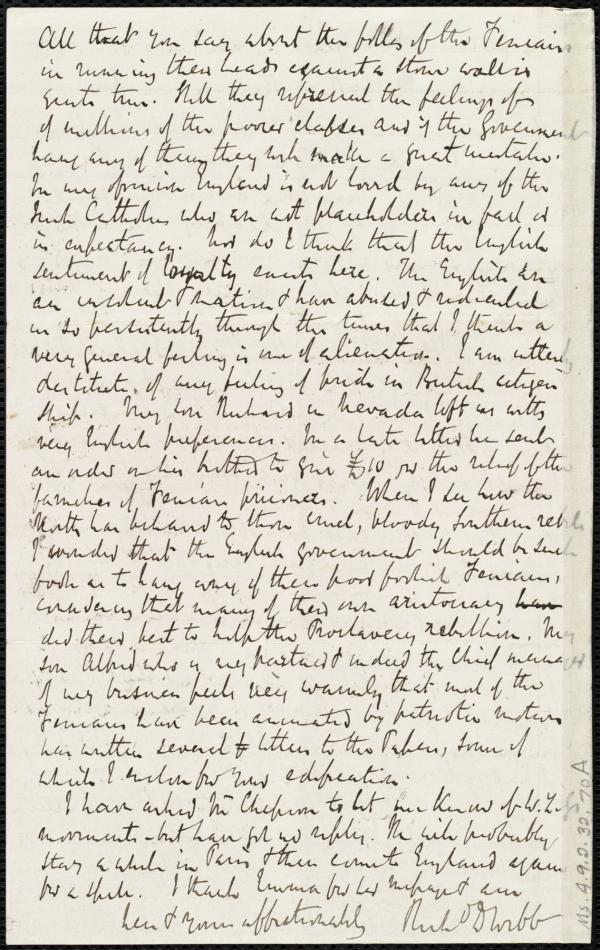 All that you say about the folly of the Fenians
in running their heads against a stone wall is
quite true. Still they represent the feelings of
of millions of the poorer classes and if the Government
hang any of them they will make a great mistake.
In my opinion England is not loved by any of the
Irish Catholics who are not placeholders in fact or
in expectancy. Nor do I think that the English
sentiment of loyalty exists here. The English are
an insolent & nation & have abused & ridiculed
us so persistently through the times that I think a
very general feeling is one of alienation. I am utterly
destitute of any feeling of pride in British citizen
ship. My son Richard in Nevada left us with
very English preferences. In a late letter he sent
an order on his brother to give £10 for the relief of the
families of Fenian prisoners. When I see how the
North has behaved to those cruel, bloody Southern rebels
I wonder that the English government should be such
fools as to hang any of these poor foolish Fenians,
considering that many of their own aristocracy
did their best to help the Proslavery rebellion. My
son Alfred who is my partner & indeed the chief manager
of my business feels very warmly that most of the
Fenians have been animated by patriotic motives
has written several letters to the Papers, some of
which I enclose for your edification.
I have asked Mr Chesson to let me know of W.L.G's
movements - but have got no reply. He will probably
stay a while in Paris & then come to England again
for a spell. I thank Emma for her message & am
hers & yours affectionately Richd D Webb
Ms. A.9.2.32.70A